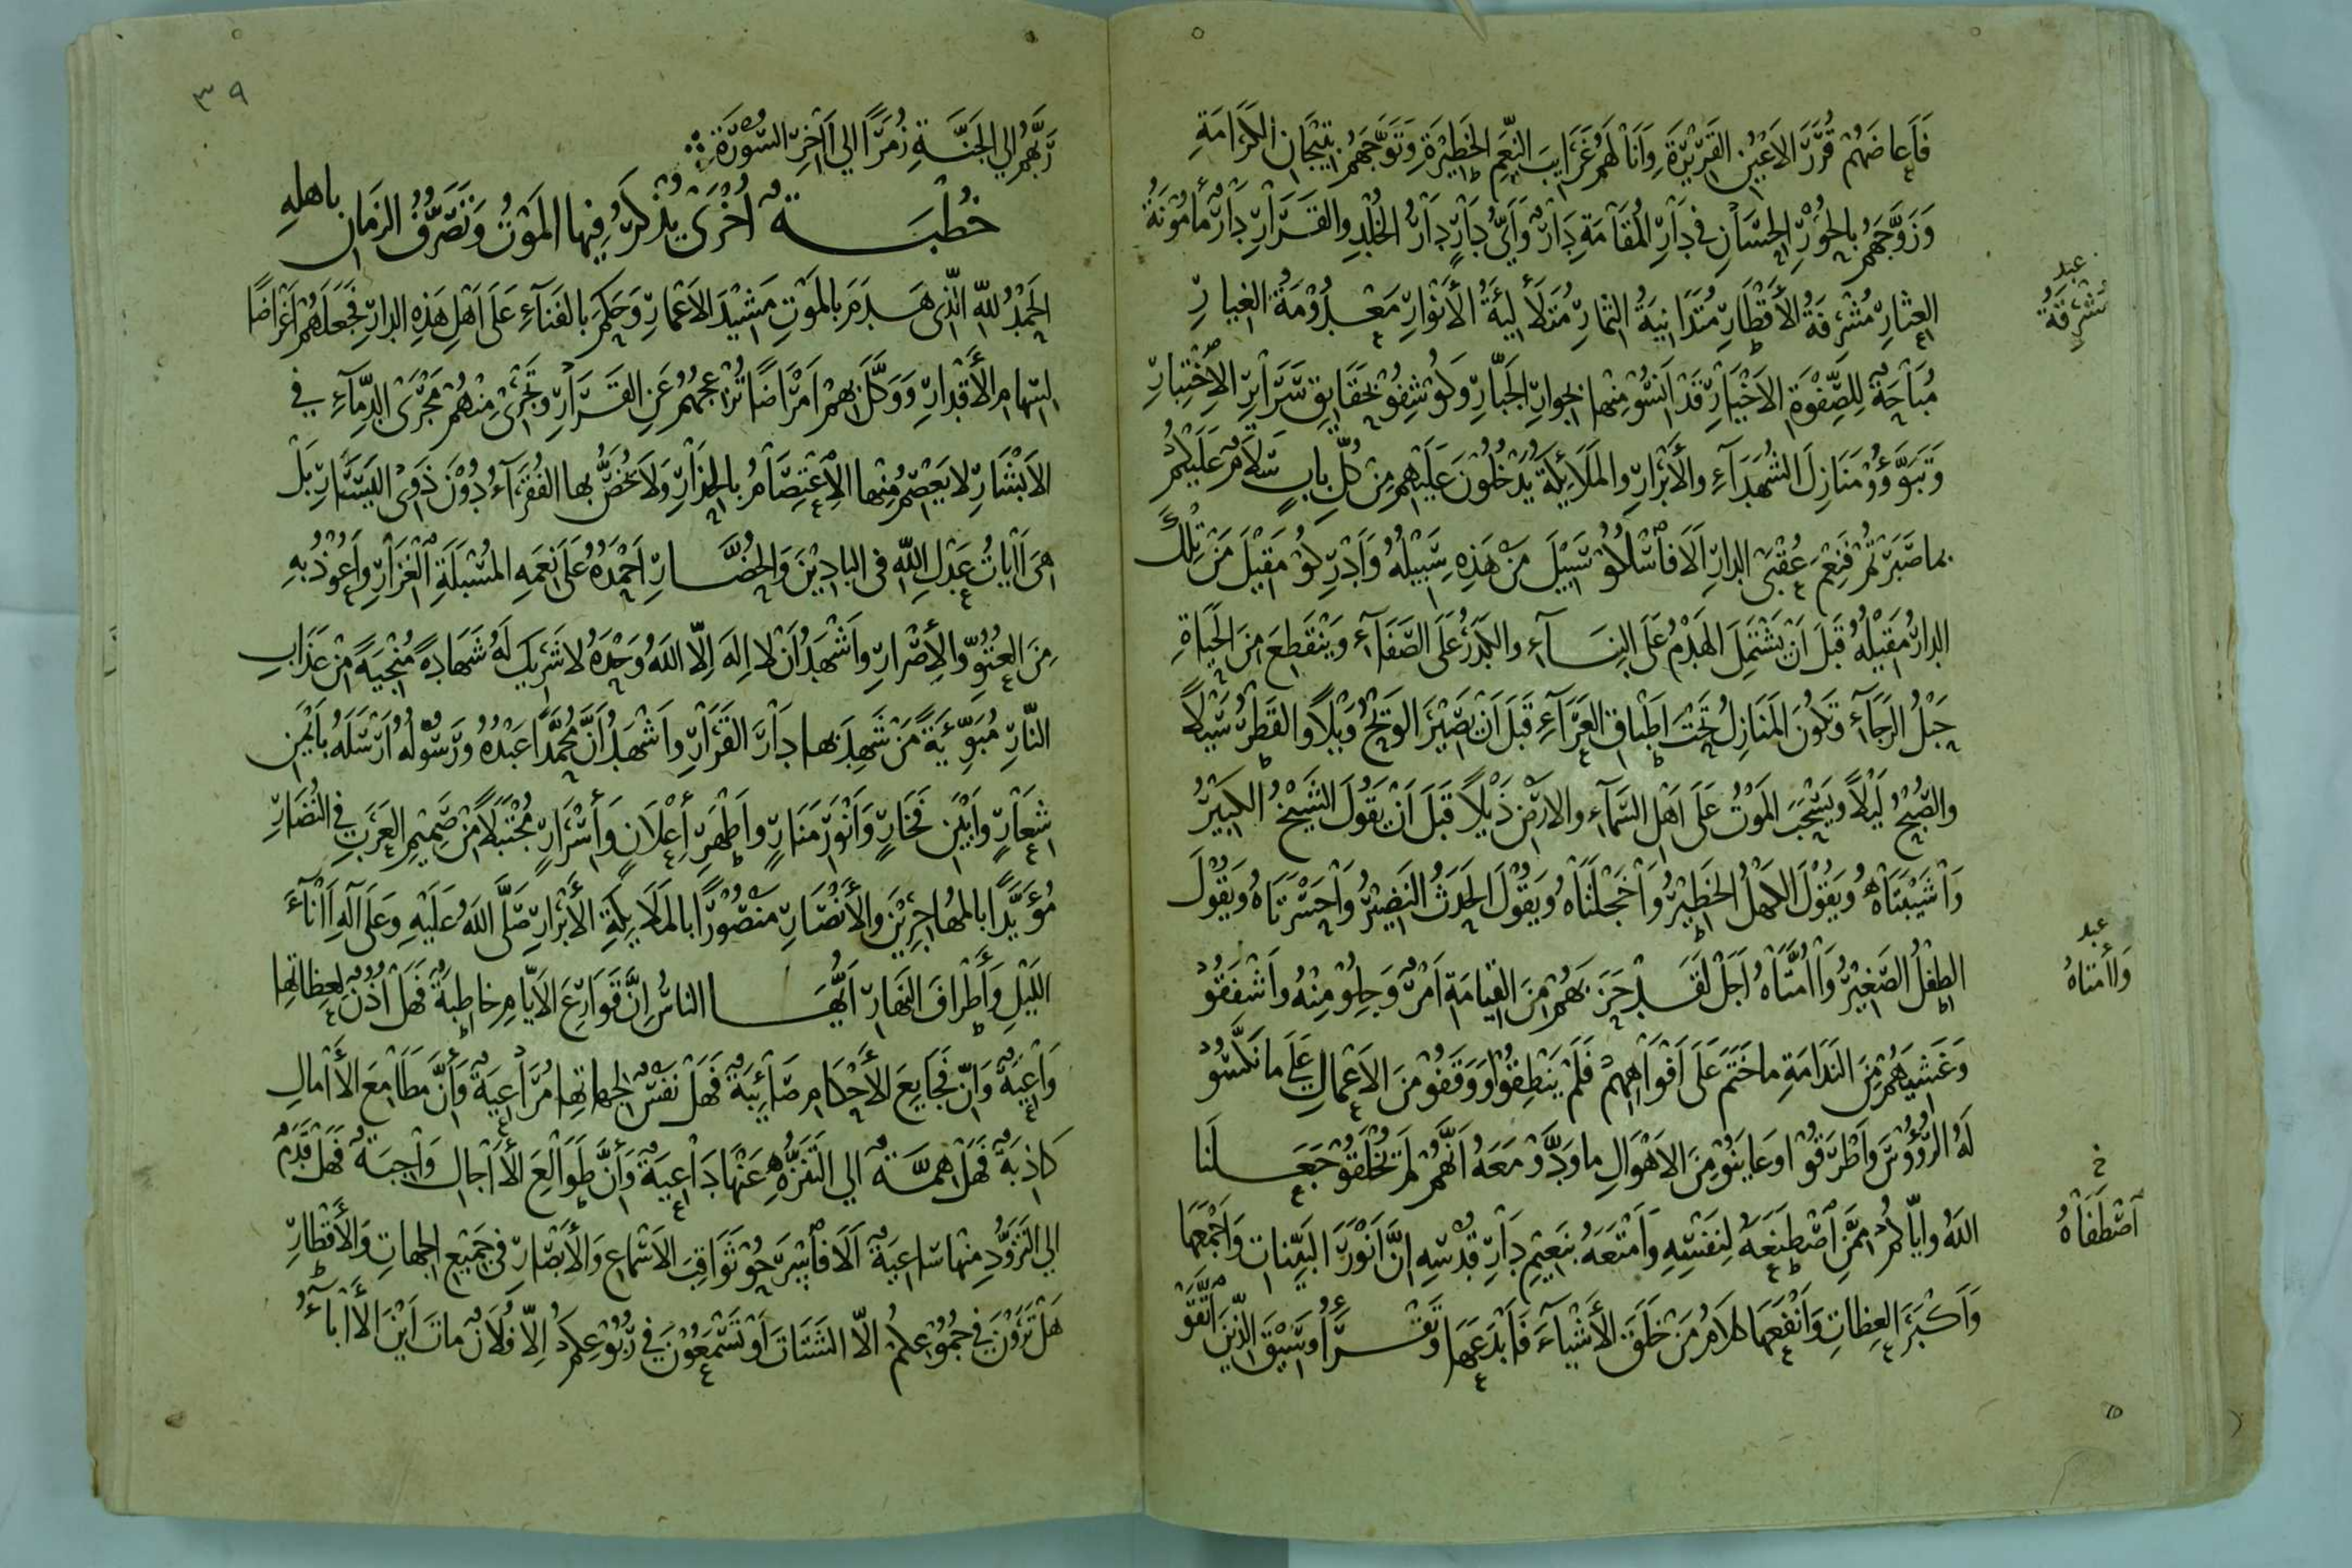 فَأَعاضَهُمْ قُرَرَ الأَعْيُنِ القَرِيْرَةِ وَأَنَالَهُمْ غَرَايِبَ النِّعَمِ الخَطِيْرَةِ وَتَوَّجَهُمْ بِتِيْجَانِ الكَرَامَةِ
وَزَوَّجَهُمْ بِالحُوْرِ الحِسَانِ فِي دَارِ المُقَامَةِ دَارٌ وَأَيُّ دَارٍ دَارُ الخُلْدِ والقَرَارِ دَارٌ مَأمُوْنَةُ
العِثَارِ مُشْرِفَةُ الأَقْطَارِ مُتَدَانِيَةُ الثِّمَارِ مُتَلَأْلِيَةُ الأَنْوَارِ مَعْدُوْمَةُ الغِيَارِ
عبد
مُشْرِقَةُ
مُبَاحَةٌ لِلصِّفْوَةِ الأَخْيَارِ قَدْ أَنِسُوْ مِنْها بِجِوارِ الجَبَّارِ وَكُوْشِفُوْ بِحَقَايِقِ سَرَائِرِ الإِخْتِبَارِ
وَتَبَوَّؤُوْ مَنَازِلَ الشُهَدَآءِ والأَبْرَارِ والمَلَائِكَةُ يَدْخُلُوْنَ عَلَيْهِمْ مِنْ كُلِّ بابٍ سَلَامٌ عَلَيْكُمْ
بِما صَبَرْتُمْ فَنِعْمَ عُقْبَى الدارِ أَلَا فَاسْلُكُوْ سَبِيْلَ مَنْ هَذِهِ سَبِيْلُهُ وَأَدْرِكُوْ مَقِيْلَ مَنْ تِلْكَ
الدارُ مَقِيْلُهُ قَبْلَ أَنْ يَشْتَمِلَ الهَدْمُ عَلَى البِنَـــآءِ والكَدَرُ عَلَى الصَّفَآءِ وَيَنْقَطِعَ مِنَ الحَيَاةِ
حَبْلُ الرَجَآءِ وَتَكُوْنَ المَنَازِلُ تَحْتَ أَطْباقِ العَرَآءِ قَبْلَ أَنْ يَصِيْرَ الوَتِحُ وَبْلًا والقَطْرُ سَيْلًا
والصُّبْحُ لَيْلًا وَيَسْحَبَ المَوْتُ عَلَى أَهْلِ السَّمَآءِ والأَرْضِ ذَيْلًا قَبْلَ أَنْ يَقُوْلَ الشَيْخُ الكَبِيْرُ
وَاشَيْبَتَاهُ وَيَقُوْلَ الكَهْلُ الخَطِيْرُ وَاخَجْلَتَاهُ وَيَقُوْلَ الحَدَثُ النَضِيْرُ وَاحَسْرَتَاهُ وَيَقُوْلَ
الطِفْلُ الصَّغِيْرُ وَاأُمَّتَاهُ أَجَلْ لَقَدْ حَزَبَهُمْ مِنَ القِيامَةِ أَمْرٌ وَجِلُوْ مِنْهُ وَأَشْفَقُوْ
عبد
وَاأُمتاهُ
وَغَشِيَهُمْ مِنَ النَدَامَةِ ما خَتَمَ عَلَى أَفْوَاهِهِمْ فَلَمْ يَنْطِقُوْا وَوَقَفُوْ مِنَ الأَعْمالِ عَلَى ما نَكَّسُوْ
لَهُ الرُّؤُوْسَ وَأَطْرَقُوْا وَعايَنُوْ مِنَ الأَهْوَالِ ما وَدُّوْ مَعَهُ أَنَّهُمْ لَمْ يُخْلَقُوْ جَعَـــلَنا
اللهُ وايّاكُمْ مِمَّنِ اصْطَنَعَهُ لِنَفْسِهِ وَأَمْتَعَهُ بِنَعِيْمِ دَارِ قُدْسِهِ إِنَّ أَنْوَرَ البَيِّناتِ وَأَجْمَعَهَا
خ
اصْطَفَاهُ
وَأَكْبَرَ العِظاتِ وَأَنْفَعَها كَلَامُ مَنْ خَلَقَ الأَشْيآءَ فَأَبْدَعَها وَتَقْـــرَأُ وَسِيْقَ الذَّيْنَ اتَّقَوْ
٣٩
رَبَّهُمْ الي الجَنَّــةِ زُمَرًا الي آخِرِ السُّوْرَةِ
خُطْبَــــةٌ أُخْرَى يُذْكَرُ فِيها المَوْتُ وَتَصَرُّفُ الزَمانِ باهلهِ
الحَمْدُ للهِ الَّذِي هَدَمَ بِالمَوْتِ مَشِيْدَ الأَعْمارِ وَحَكَمَ بِالفَنَآءِ عَلَى أَهْلِ هَذِهِ الدارِ فَجَعَلَهُمْ أَغْرَاضًا
لِسِهامِ الأَقْدَارِ وَوَكَّلَ بِهِمْ أَمْرَاضًا تُزْعِجُهُمْ عَنِ القَرَارِ وَتَجْرِي مِنْهُمْ مَجْرَى الدِّمَآءِ فِي
الأَبْشَارِ لا يَعْصِمُ مِنْها الإِعْتِصَامُ بِالحِذَارِ وَلَا يُخَصُّ بِها الفُقَرَآءُ دُوْنَ ذَوِي اليَسَارِ بَلْ
هِيَ آيَاتُ عَدْلِ اللهِ فِي البادِيْنَ وَالحُضَّـــارِ أَحْمَدُهُ عَلَى نِعَمِهِ المُسْبَلَةِ الغِزَارِ وأَعُوْذُ بِهِ
مِنَ العُتُوِّ والإِصْرَارِ وأَشْهَدُ أَنْ لا إِلهَ إِلّا اللهُ وَحْدَهُ لا شَرِيكَ لَهُ شَهَادَةً مُنْجِيَةً مِنْ عَذَابِ
النّارِ مُبَوِّئَةً مَنْ شَهِدَ بِها دَارَ القَرَارِ وأَشْهَدُ أَنَّ مُحَمَّدًا عَبْدُهُ وَرَسُوْلُهُ أَرْسَلَهُ بِأَيْمَنِ
شِعَارٍ وأَبْيَنِ فَخَارٍ وَأَنْوَرِ مَنَارٍ وأَطْهَرِ إِعْلَانٍ وَأَسْرَارٍ مُجْتَبًلا مِنْ صَمِيمِ العَرَبِ فِي النُضَارِ
مُؤَيَّدًا بِالمُهاجِرِيْنَ والأَنْصَارِ مَنْصُوْرًا بِالمَلَايِكَةِ الأَبْرَارِ صَلَّى اللهُ عَلَيْهِ وَعَلَى آلِهِ آنَاءَ
اللَيْلِ وَأَطْرافَ النَهارِ أَيُّهَـــا الناسُ إِنَّ قَوَارِعَ الأَيَّامِ خاطِبَةٌ فَهَلْ أُذُنٌ لِعِظاتِها
وَاعِيَةٌ وَانَّ فَجَايِعَ الأَحْكامِ صَائِبَةٌ فَهَلْ نَفْسٌ لِجِهاتِها مُرَاعِيَةٌ وَأَنَّ مَطَامِعَ الأَآمَالِ
كَاذِبَةٌ فَهَلْ هِمَّــةٌ الي التَنَزُّهِ عَنْهَا دَاعِيَةٌ وَأَنَّ طَوَالِعَ الأَآجالِ وَاجِبَةٌ فَهَلْ قَدَمٌ
الي التَزَوُّدِ مِنْها سَاعِيَةٌ أَلَا فَاسْرَحُوْ ثَوَاقِبَ الأَسْمَاعِ وَالأَبْصَارِ فِي جَمِيْعِ الجِهاتِ وَالأَقْطَارِ
هَلْ تَرَوْنَ فِي جُمُوْعِكُمْ الّا الشَتَاتَ أَوْ تَسْمَعُوْنَ فِي رُبُوْعِكُمْ إِلّا فُلَانٌ ماتَ أَيْنَ الأَآبَآءُ